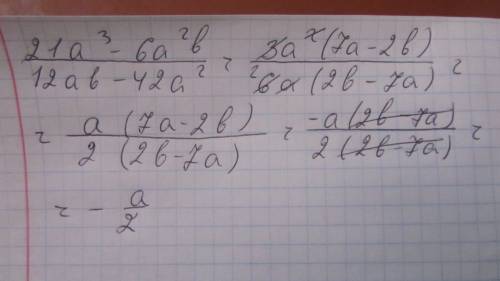 21a³ - 6a²b / 12ab - 42a² = 3a²(7a - 2b) / 6a(2b - 7a) =
= a(7a - 2b) / 2(2b - 7a) = -a(2b - 7a) / 2(2b - 7a) =
= - a / 2